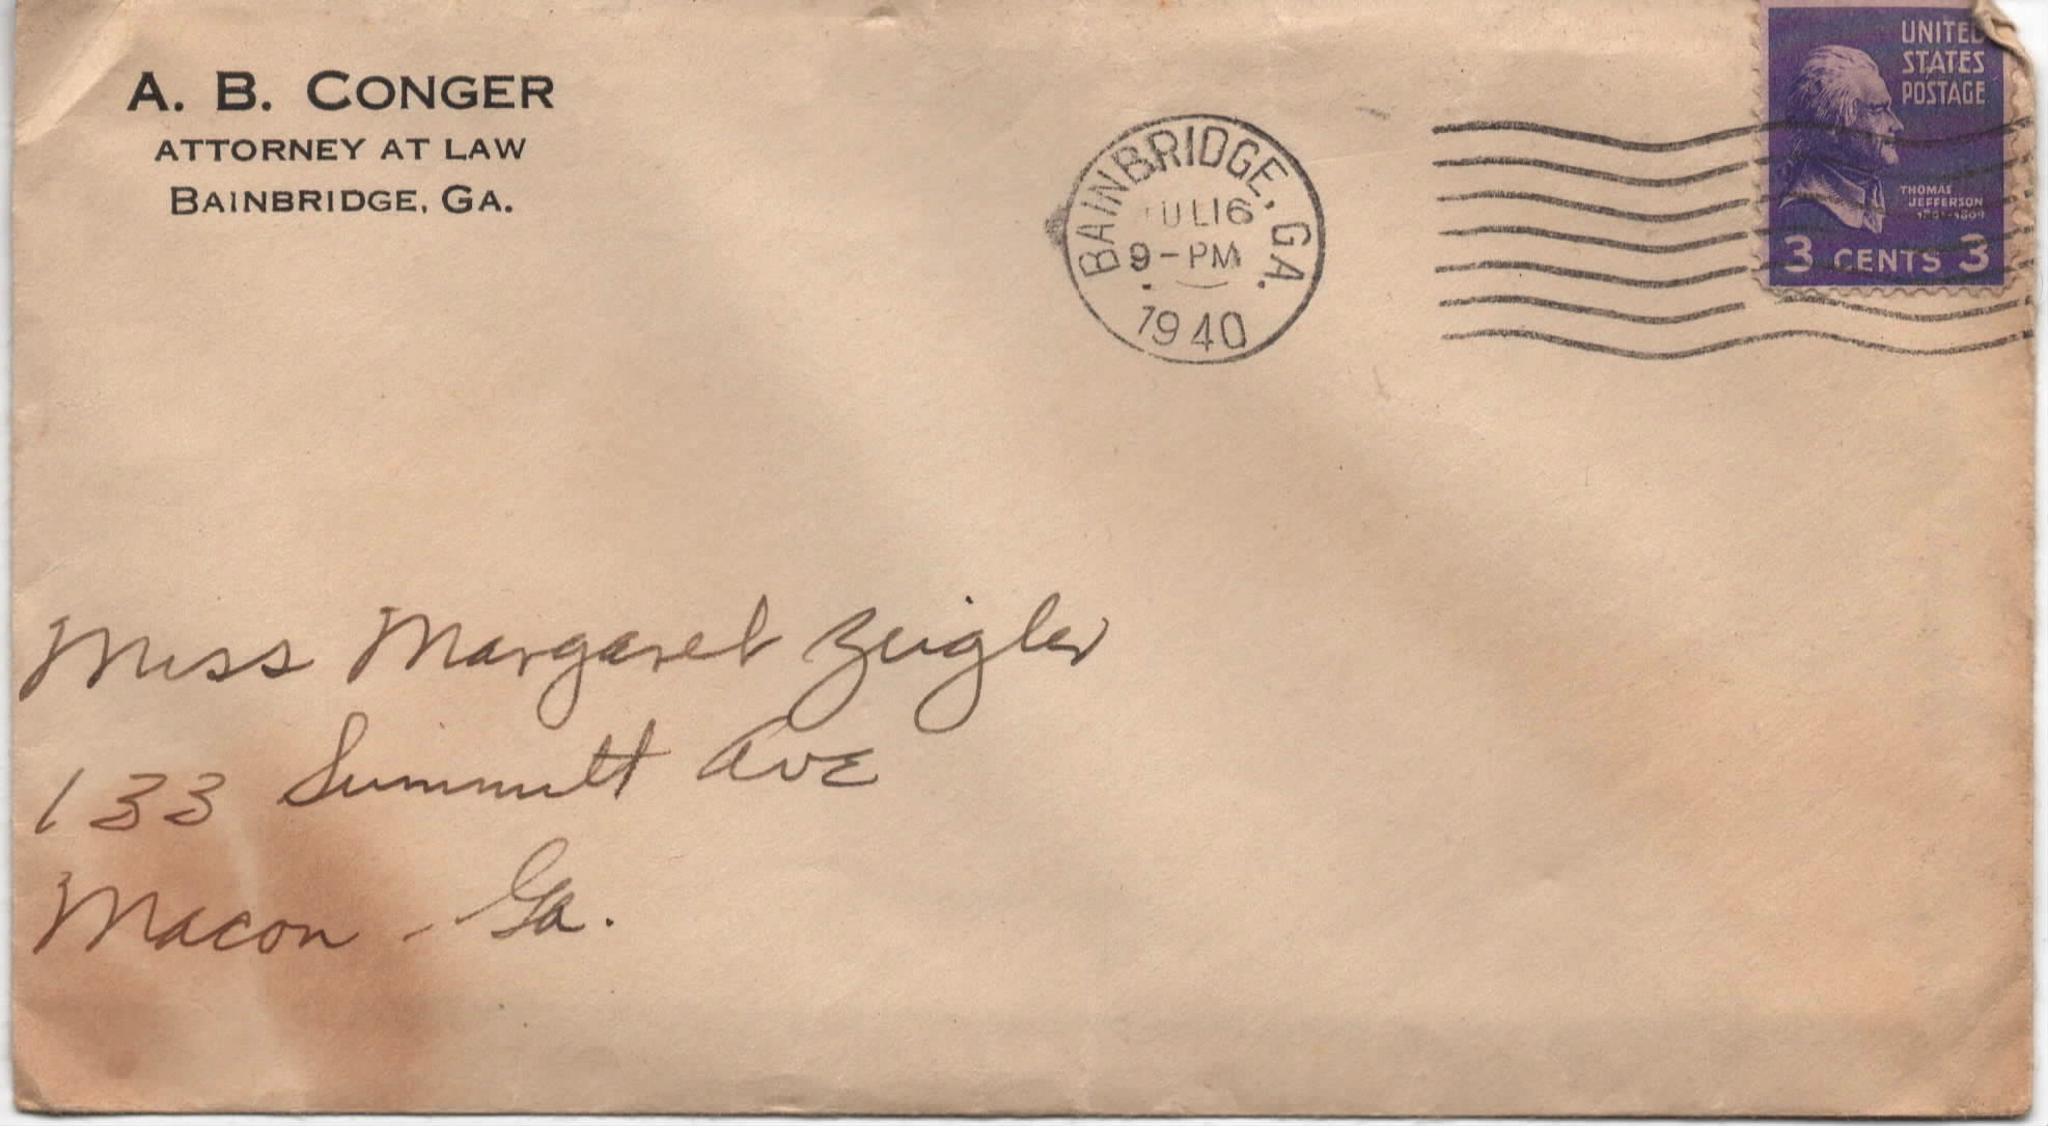 A. B. CONGER
ATTORNEY AT LAW
BAINBRIDGE, GA.
BAINBRIDGE, GA.
JUL 16
9-PM
1940
UNITED
STATES
POSTAGE
THOMAS
JEFFERSON
1801-1809
3 CENTS 3
Miss Margaret Zeigler
133 Summitt Ave
Macon - Ga.